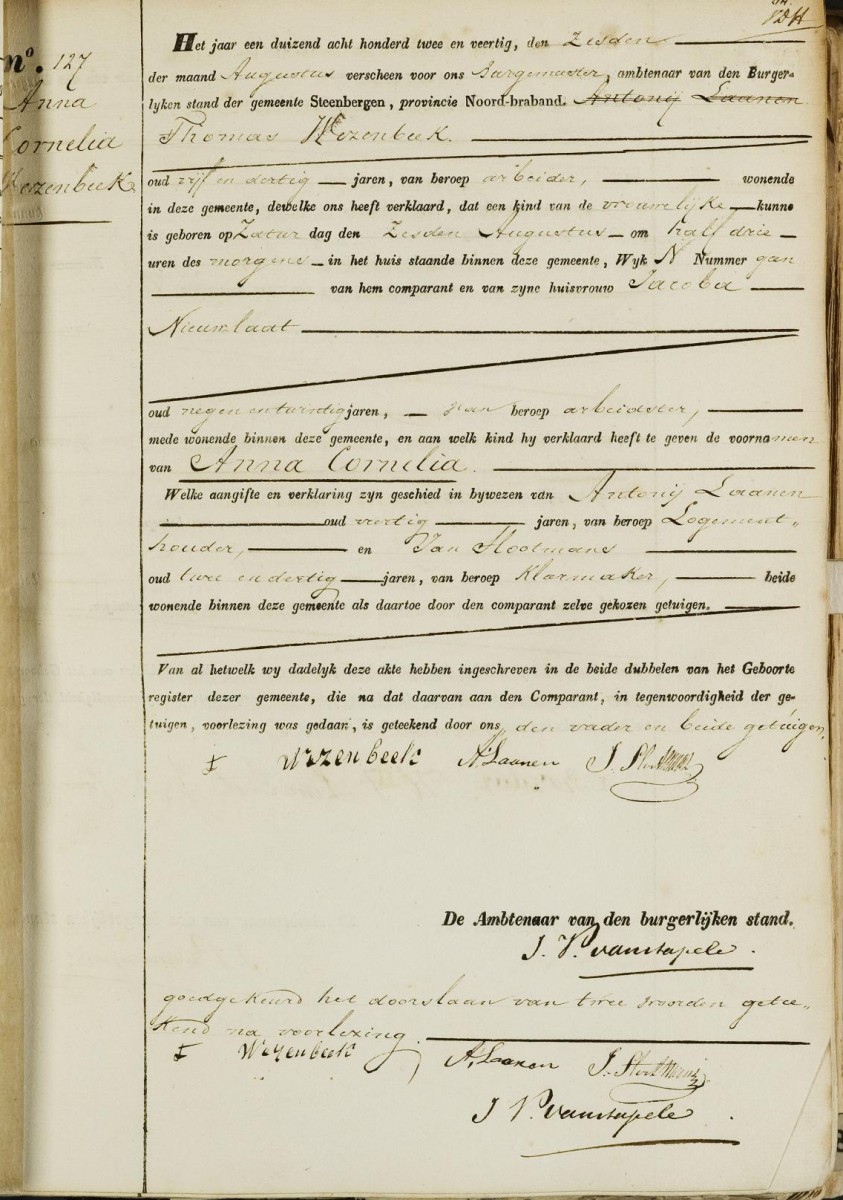 Nº. 127
Anna
Cornelia
Wezenbeek
Het jaar een duizend acht honderd twee en veertig, den Zesden
der maand Augustus verscheen voor ons Burgemeester, ambtenaar van den Burger-
lyken stand der gemeente Steenbergen, provincie Noord-braband. Antonij Laanen
Thomas Wezenbeek.
oud vijf en dertig jaren, van beroep arbeider, wonende
in deze gemeente, dewelke ons heeft verklaard, dat een kind van de vrouwelyke kunne
is geboren op Zatur dag den Zesden Augustus om half drie
uren des morgens in het huis staande binnen deze gemeente, Wyk N Nummer gan
van hem comparant en van zyne huisvrouw Jacoba
Nieuwlaat
oud negen en twintig jaren, van beroep arbeidster,
mede wonende binnen deze gemeente, en aan welk kind hy verklaard heeft te geven de voornamen
van Anna Cornelia.
Welke aangifte en verklaring zyn geschied in bywezen van Antonij Laanen
oud veertig jaren, van beroep Logement„
houder, en Jan Slootmans
oud twee en dertig jaren, van beroep Klermaker, beide
wonende binnen deze gemeente als daartoe door den comparant zelve gekozen getuigen.
Van al hetwelk wy dadelyk deze akte hebben ingeschreven in de beide dubbelen van het Geboorte
register dezer gemeente, die na dat daarvan aan den Comparant, in tegenwoordigheid der ge-
tuigen, voorlezing was gedaan, is geteekend door ons, den vader en beide getuigen.
T Wezenbeek A. Laanen J. Slootmans
De Ambtenaar van den burgerlijken stand.
J. P. van stapele.
goedgekeurd het doorslaan van twee woorden getee-
kend na voorlezing.
T Wezenbeek A. Laanen J. Slootmans
J P. van stapele.